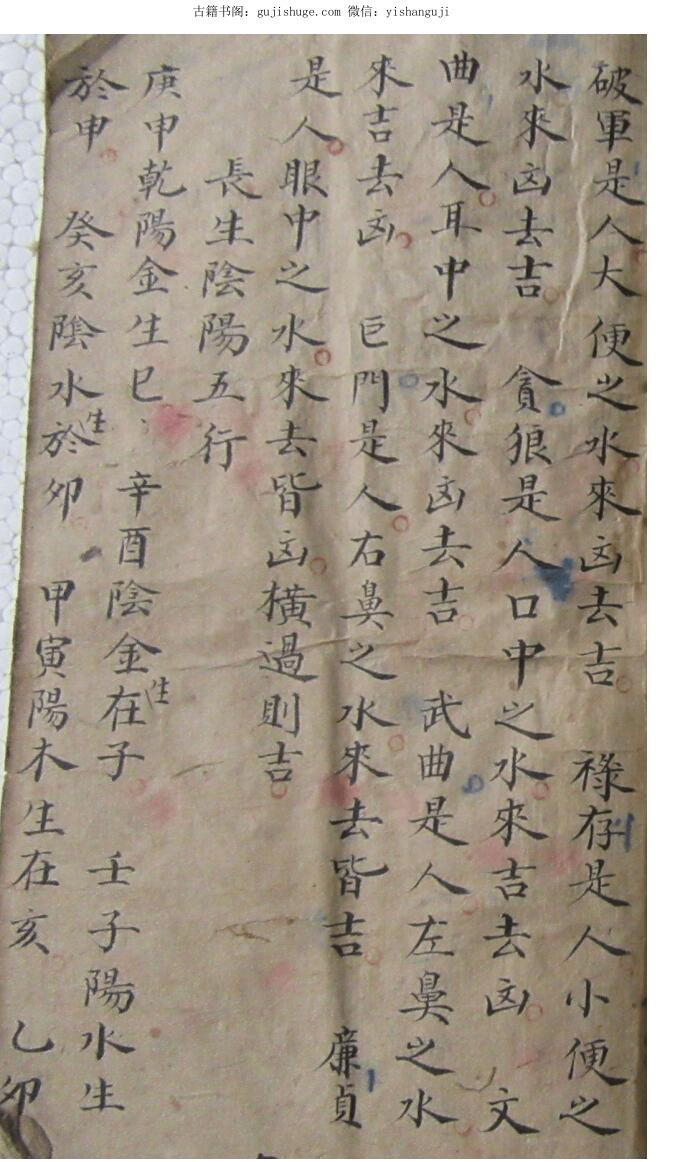 古籍书阁：gujishuge.com 微信：yishanguji
破軍是人大便之水來凶去吉　祿存是人小便之
水來凶去吉　貪狼是人口中之水來吉去凶　文
曲是人耳中之水來凶去吉　武曲是人左鼻之水
來吉去凶　巨門是人右鼻之水來去皆吉　廉貞
是人眼中之水來去皆凶橫過則吉
長生陰陽五行
庚申乾陽金生巳　辛酉陰金生在子　壬子陽水生
於申　癸亥陰水生於卯　甲寅陽木生在亥　乙卯